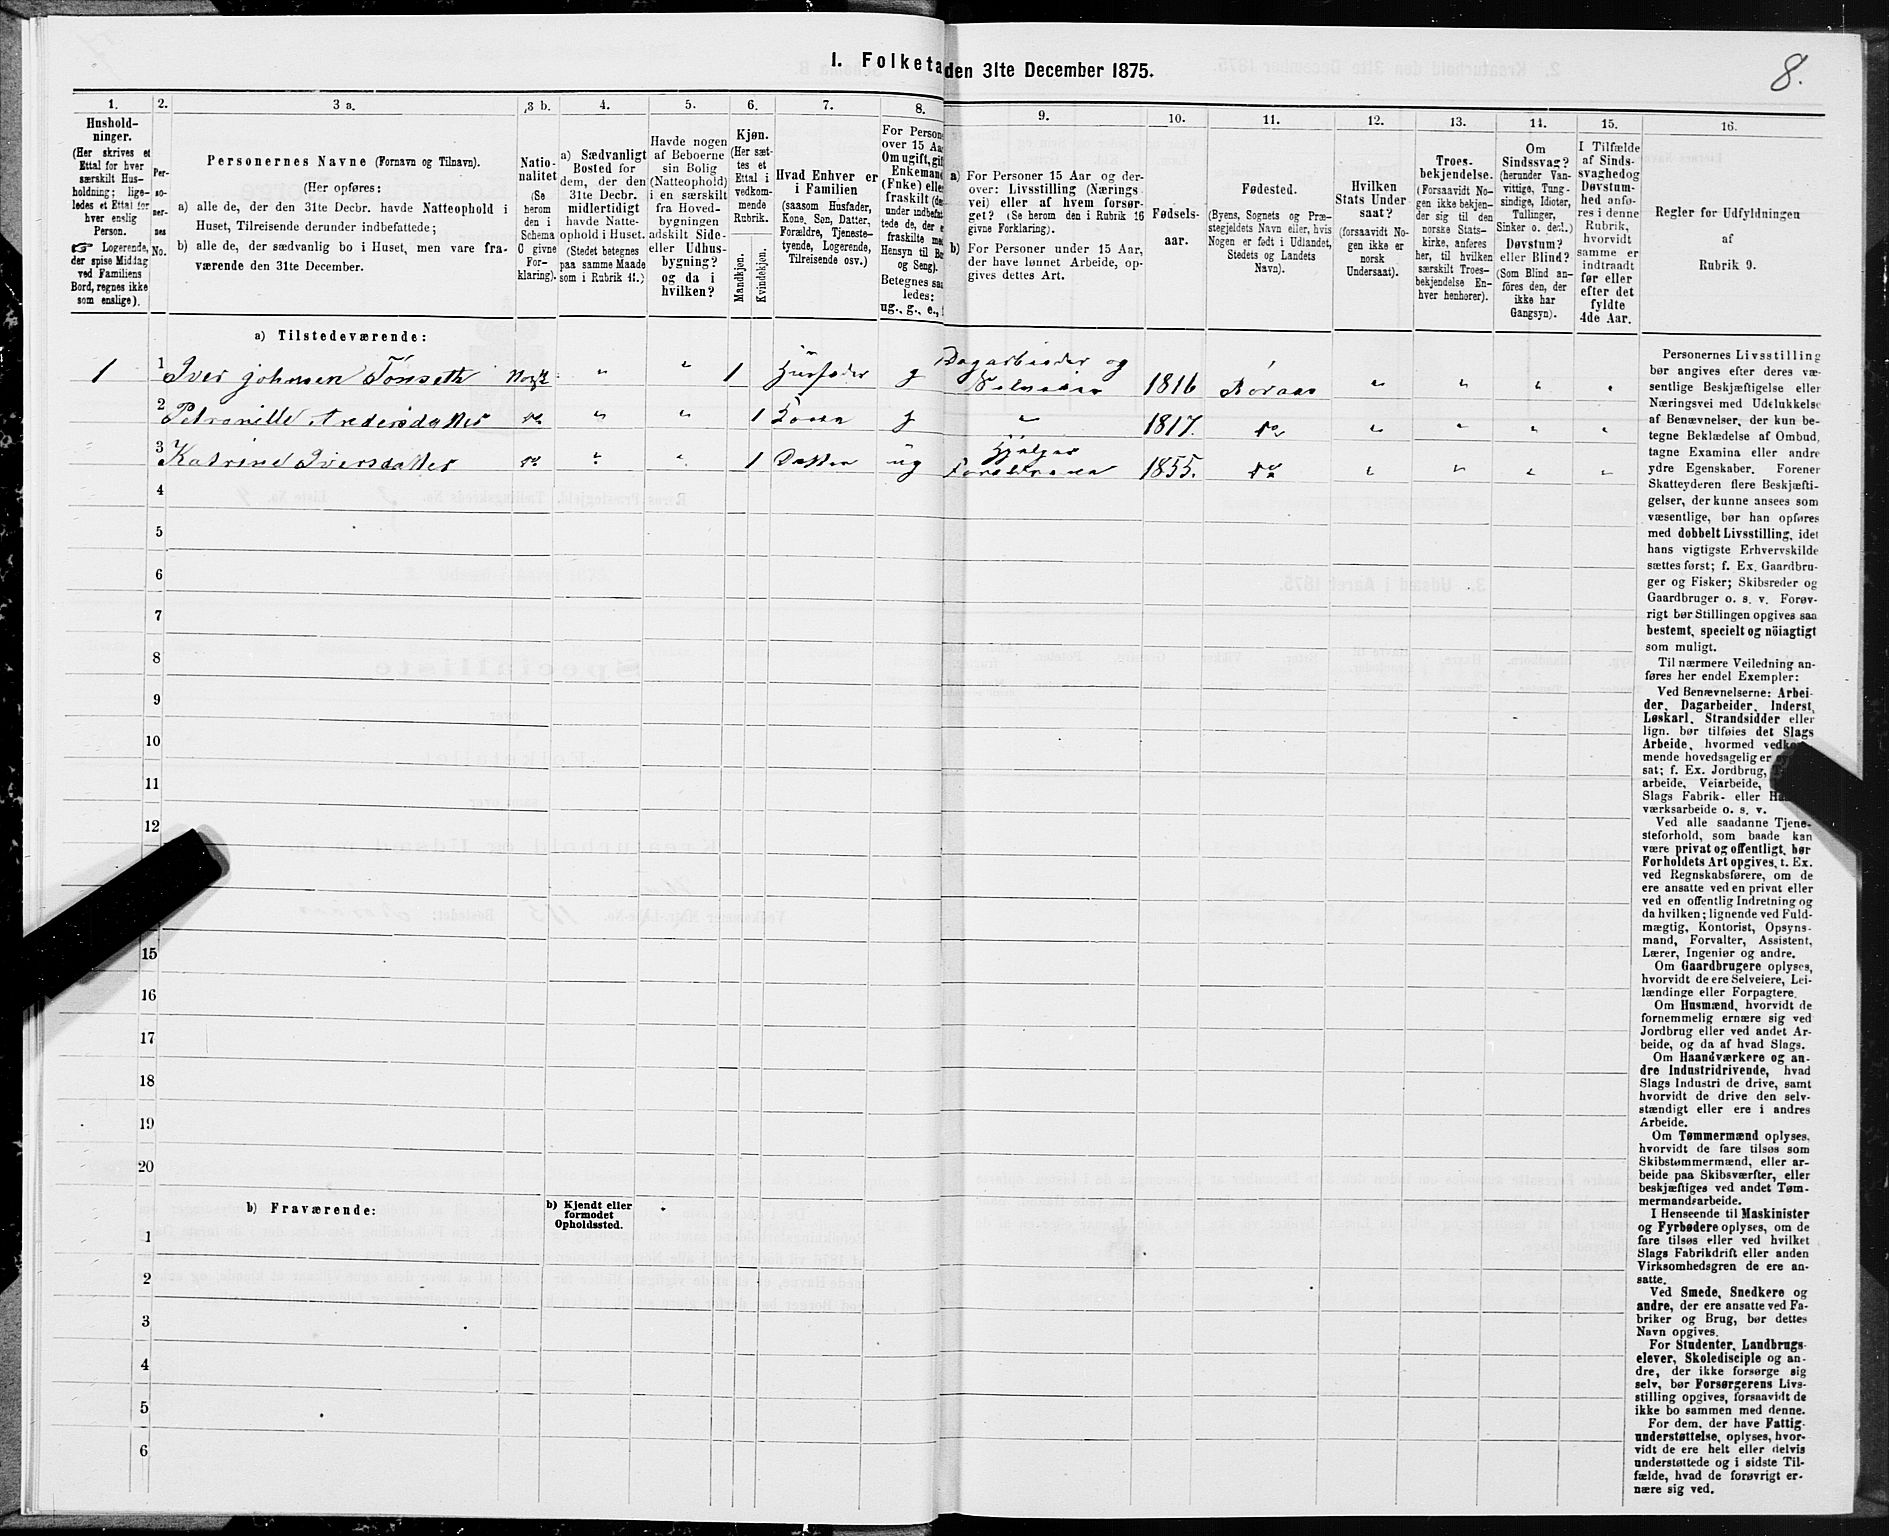 8.
I. Folketa
den 31te December 1875.
1.
Hushold-
ninger.
(Her skrives et
Ettal for hver
særskilt Hus-
holdning; lige-
ledes et Ettal for
hver enslig
Person.
☞ Logerende,
der spise Middag
ved Familiens
Bord, regnes ikke
som enslige).
2.
Per-
so-
ner-
nes
No.
3 a.
Personernes Navne (Fornavn og Tilnavn).
(Her opføres:
a) alle de, der den 31te Decbr. havde Natteophold i
Huset, Tilreisende derunder indbefattede;
b) alle de, der sædvanlig bo i Huset, men vare fra-
værende den 31te December.
3 b.
Natio-
nalitet
(Se
herom
den i
Schema
O givne
For-
klaring).
4.
a) Sædvanligt
Bosted for
dem, der den
31te Decbr.
midlertidigt
havde Natte-
ophold i Huset.
(Stedet betegnes
paa samme Maade
som i Rubrik 11.)
5.
Havde nogen
af Beboerne
sin Bolig
(Natteophold)
i en særskilt
fra Hoved-
bygningen
adskilt Side-
eller Udhus-
bygning?
og da i
hvilken?
6.
Kjøn.
(Her sæt-
tes et
Ettal i
vedkom-
mende
Rubrik.
Mandkjøn.
Kvindekjøn.
7.
Hvad Enhver er
i Familien
(saasom Husfader,
Kone, Søn, Datter,
Forældre, Tjeneste-
tyende, Logerende,
Tilreisende osv.)
8.
For Person
over 15 Aar
Om ugift, gif
Enkemand
(Enke) elle
fraskilt (de
under indbefat
tede de, der e
fraskilte me
Hensyn til Bo
og Seng).
Betegnes saa
ledes:
ug., g., e., f
9.
a) For Personer 15 Aar og der-
over: Livsstilling (Nærings
vei) eller af hvem forsør-
get? (Se herom den i Rubrik 16
givne Forklaring).
b) For Personer under 15 Aar,
der have lønnet Arbeide, op-
gives dettes Art.
10.
Fødsels-
aar.
11.
Fødested.
(Byens, Sognets og Præ-
stegjeldets Navn eller, hvis
Nogen er født i Udlandet,
Stedets og Landets
Navn).
12.
Hvilken
Stats Under
saat?
(forsaavidt No-
gen ikke er
norsk
Undersaat).
13.
Troes-
bekjendelse.
(Forsaavidt No-
gen ikke bekjen-
der sig til den
norske Stats-
kirke, anføres
her, til hvilken
særskilt Troes-
bekjendelse En-
hver henhører).
14.
Om
Sindssvag?
(herunder Van-
vittige, Tung-
sindige, Idioter,
Tullinger,
Sinker o. desl.)
Døvstum?
eller Blind?
(Som Blind an-
føres den, der
ikke har
Gangsyn).
15.
I Tilfælde
af Sinds-
svaghed og
Døvstum-
hed anfø-
res i denne
Rubrik,
hvorvidt
samme er
indtraadt
før eller
efter det
fyldte
4de Aar.
16.
Regler for Udfyldningen
af
Rubrik 9.
a) Tilstedeværende:
1 1 Iver Johnsen Tønseth Norsk " " 1 Husfader g Dagarbeider og
Selveier 1816 Røraas " " " "
2 Petronille Andersdatter do " " 1 Kone g " 1817. do " " " "
3 Katrine Iversdatter do " " 1 Datter ug Hjælper
Forældrene 1855. do " " " "
4
5
6
7
8
9
10
11
12
15
16
17
18
19
20
b) Fraværende:
b) Kjendt eller
formodet
Opholdssted.
1
2
3
4
5
6
Personernes Livsstilling
bør angives efter deres væ-
sentlige Beskjæftigelse eller
Næringsvei med Udelukkelse
af Benævnelser, der kun be-
tegne Beklædelse af Ombud,
tagne Examina eller andre
ydre Egenskaber. Forener
Skatteyderen flere Beskjæfti-
gelser, der kunne ansees som
væsentlige, bør han opføres
med dobbelt Livsstilling, idet
hans vigtigste Erhvervskilde
sættes først; f. Ex. Gaardbru-
ger og Fisker; Skibsreder og
Gaardbruger o. s. v. Forøv-
rigt bør Stillingen opgives saa
bestemt, specielt og nöiagtigt
som muligt.
Til nærmere Veiledning an-
føres her endel Exempler:
Ved Benævnelserne: Arbei-
der, Dagarbeider, Inderst,
Løskarl, Strandsidder eller
lign. bør tilføies det Slags
Arbeide, hvormed vedkom-
mende hovedsagelig er
sat; f. Ex. Jordbrug,
arbeide, Veiarbeide,
Slags Fabrik- eller
værksarbeide o. s. v.
Ved alle saadanne Tjene-
steforhold, som baade kan
være privat og offentligt, bør
Forholdets Art opgives, t. Ex.
ved Regnskabsførere, om de
ere ansatte ved en privat eller
ved en offentlig Indretning og
da hvilken; lignende ved Fuld-
mægtig, Kontorist, Opsyns-
mand, Forvalter, Assistent,
Lærer, Ingeniør og andre.
Om Gaardbrugere oplyses,
hvorvidt de ere Selveiere, Lei-
lændinge eller Forpagtere.
Om Husmænd, hvorvidt de
fornemmelig ernære sig ved
Jordbrug eller ved andet Ar-
beide, og da af hvad Slags.
Om Haandværkere og an-
dre Industridrivende, hvad
Slags Industri de drive, samt
hvorvidt de drive den selv-
stændigt eller ere i andres
Arbeide.
Om Tømmermænd oplyses,
hvorvidt de fare tilsøs som
Skibstømmermænd, eller ar-
beide paa Skibsværfter, eller
beskjæftiges ved andet Tøm-
mermandsarbeide.
I Henseende til Maskinister
og Fyrbødere oplyses, om de
fare tilsøs eller ved hvilket
Slags Fabrikdrift eller anden
Virksomhedsgren de ere an-
satte.
Ved Smede, Snedkere og
andre, der ere ansatte ved Fa-
briker og Brug, bør dettes
Navn opgives.
For Studenter, Landbrugs-
elever, Skoledisciple og an-
dre, der ikke forsørge sig
selv, bør Forsørgerens Livs-
stilling opgives, forsaavidt de
ikke bo sammen med denne.
For dem, der have Fattig-
understøttelse, oplyses, hvor-
vidt de ere helt eller delvis
understøttede og i sidste Til-
fælde, hvad de forøvrigt er-
nære sig ved.